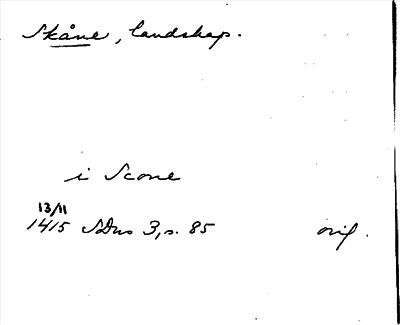 Skåne, landskap.
i Scone
13/11
1415 SDns 3, s. 85 orig.